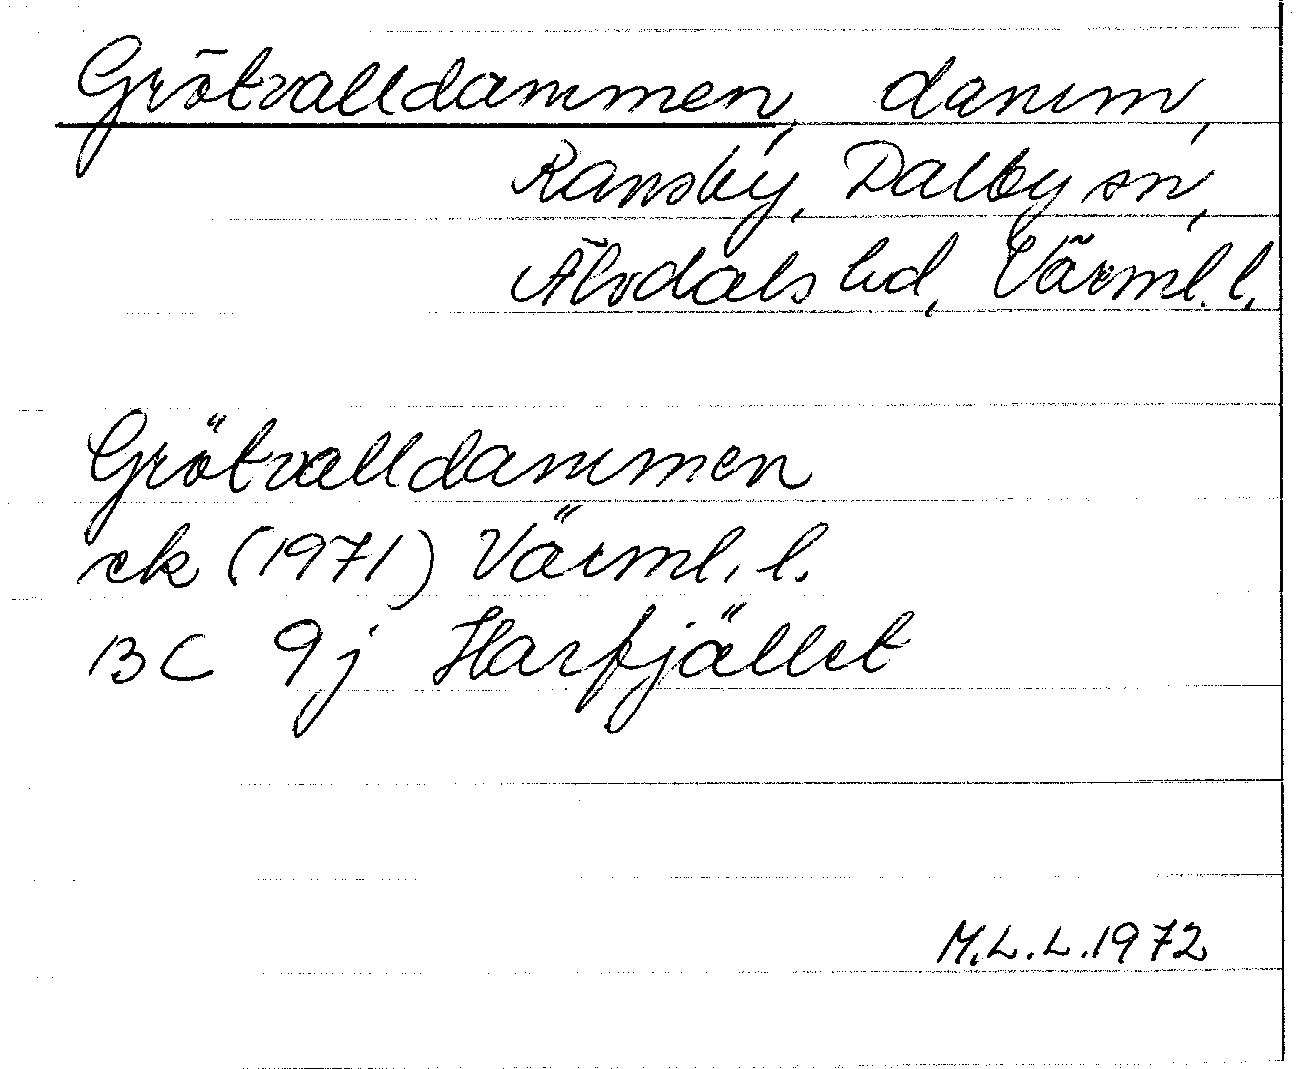 Grötvalldammen, damm,
Ransby, Dalby sn,
Älvdals hd, Värml. l.
Grötvalldammen
ek (1971) Värml. l.
13 C 9j Harfjället
M.L.L. 1972